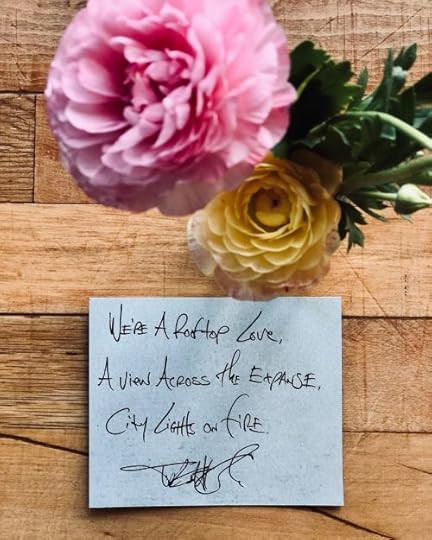 We're A Rooftop Love,
A View Across the Expanse,
City Lights on Fire